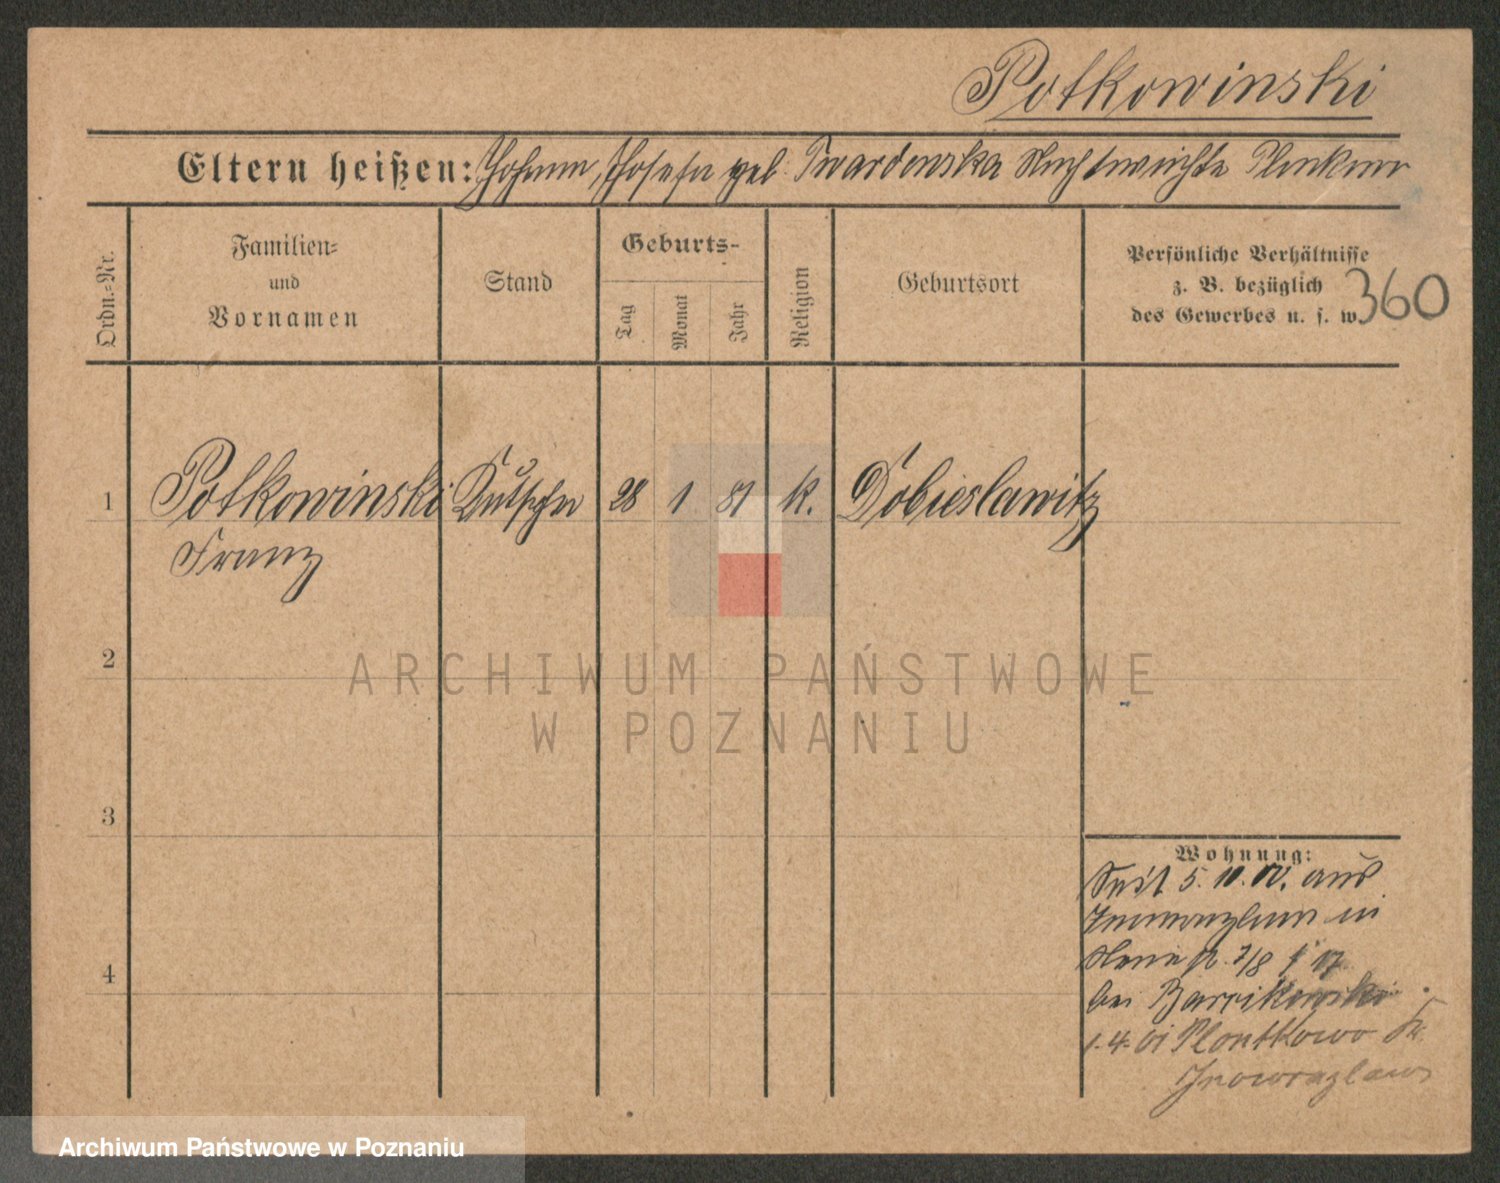 Potkowinski
Eltern heißen: Johann, Josefa geb. Twardowska
Ordn.-Nr.
Familien- und Vornamen
Stand
Geburts-
Tag
Monat
Jahr
Religion
Geburtsort
Persönliche Verhältnisse
z. B. bezüglich
des Gewerbes u. s. w.
360
1 Potkowinski Kutscher 28 1 81 K. Dobieslawitz
Franz
2
3
4
Wohnung:
Seit 5. 10. 00. aus
in
7/8 17
bei Barrikowski
1.4.01 Plontkowo Kr.
Inowrazlaw
ARCHIWUM PAŃSTWOWE
W POZNANIU
Archiwum Państwowe w Poznaniu